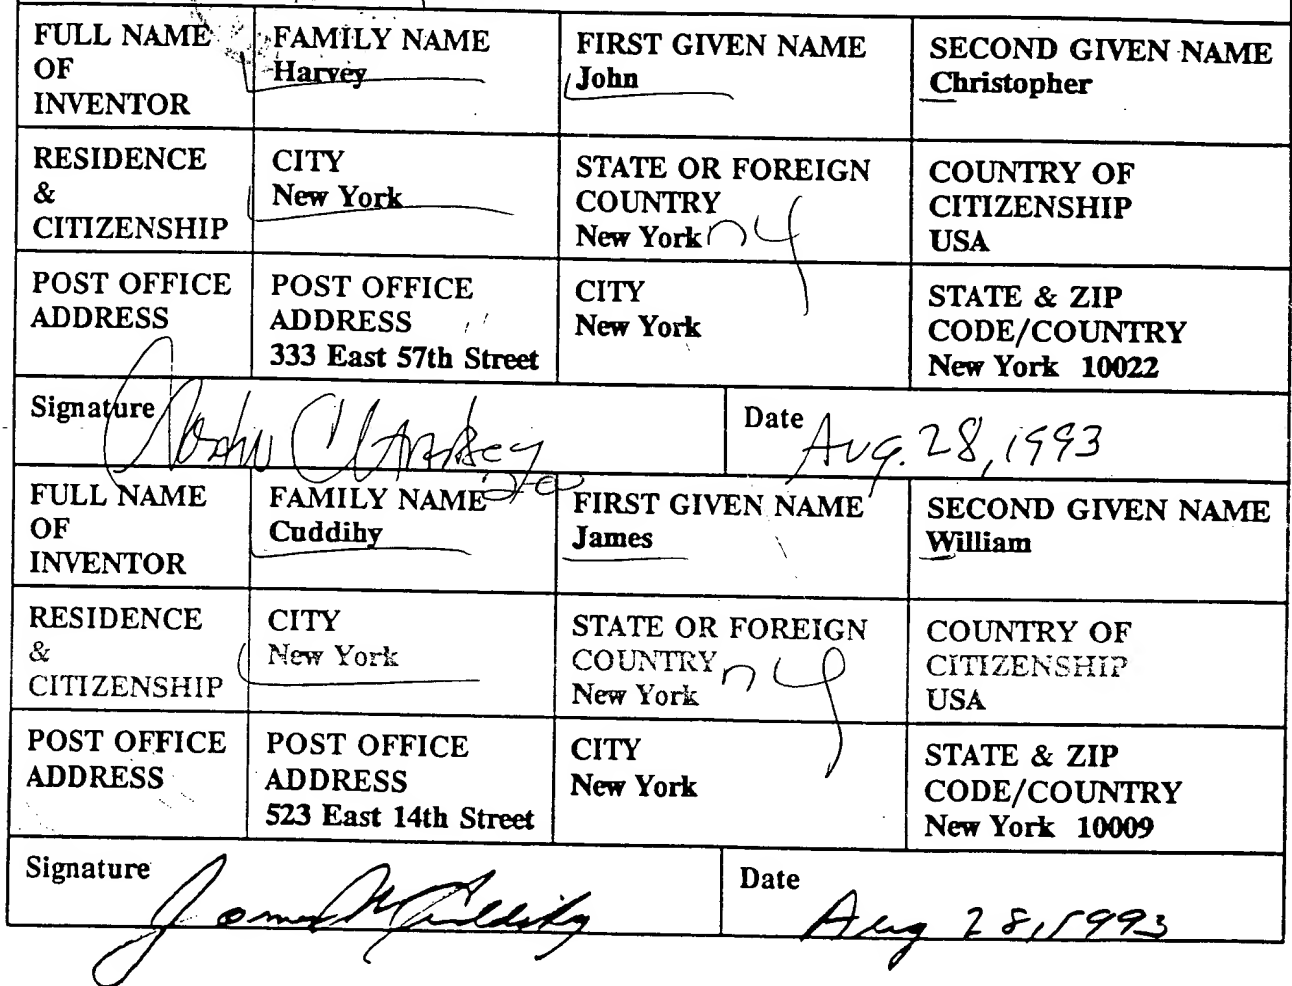 FULL NAME
OF
INVENTOR
FAMILY NAME
Harvey
FIRST GIVEN NAME
John
SECOND GIVEN NAME
Christopher
RESIDENCE
&
CITIZENSHIP
CITY
New York
STATE OR FOREIGN
COUNTRY
New York ny
COUNTRY OF
CITIZENSHIP
USA
POST OFFICE
ADDRESS
POST OFFICE
ADDRESS
333 East 57th Street
CITY
New York
STATE & ZIP
CODE/COUNTRY
New York 10022
Signature John C Harvey
Date Aug. 28, 1993
FULL NAME
OF
INVENTOR
FAMILY NAME
Cuddihy
FIRST GIVEN NAME
James
SECOND GIVEN NAME
William
RESIDENCE
&
CITIZENSHIP
CITY
New York
STATE OR FOREIGN
COUNTRY
New York ny
COUNTRY OF
CITIZENSHIP
USA
POST OFFICE
ADDRESS
POST OFFICE
ADDRESS
523 East 14th Street
CITY
New York
STATE & ZIP
CODE/COUNTRY
New York 10009
Signature James W Cuddihy
Date Aug 28, 1993